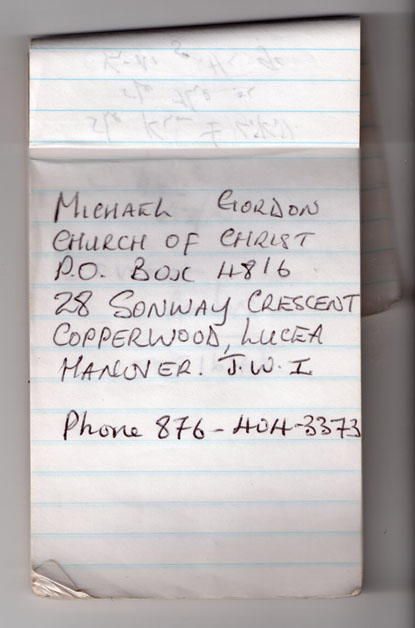 MICHAEL GORDON
CHURCH OF CHRIST
P.O. BOX 4816
28 SONWAY CRESCENT
COPPERWOOD, LUCEA
HANOVER. J.W.I
Phone 876-404-3373